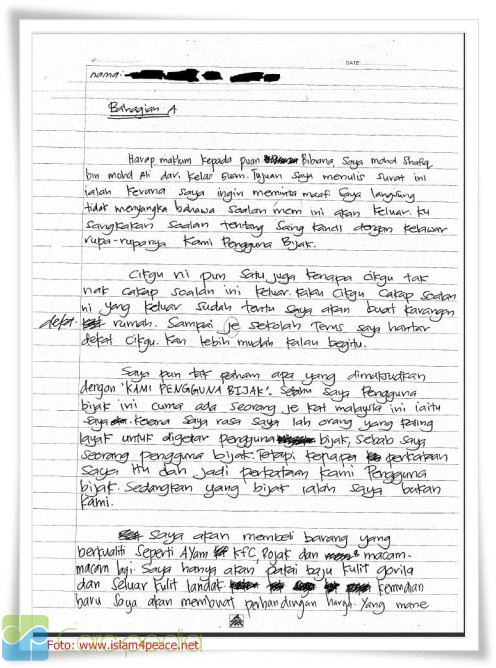 DATE:
nama:
Bahagian A
Harap maklum kepada puan Bibana, Saya mohd Shafiq
bin mohd Ali dari kelas 5uam. Tujuan saya menulis surat ini
ialah kerana saya ingin meminta maaf. Saya langsung
tidak menyangka bahawa soalan mcm ini akan keluar. ku
sangkakan soalan tentang Sang kancil dengan kelawar
rupa-rupanya Kami Pengguna Bijak.
Cikgu ni pun satu juga kenapa cikgu tak
nak cakap soalan ini keluar. Kalau Cikgu cakap soalan
ni yang keluar sudah tentu saya akan buat karangan
dekat rumah. Sampai je sekolah Terus saya hantar
dekat Cikgu. Kan lebih mudah kalau begitu.
Saya pun tak paham apa yang dimaksudkan
dengan 'KAMI PENGGUNA BIJAK'. Pengguna
bijak ini cuma ada seorang je kat malaysia ini iaitu
saya. Kerana Saya rasa Saya lah orang yang paling
layak untuk digelar pengguna bijak, Sebab saya
seorang pengguna bijak. Tetapi kenapa perkataan
Saya itu dah jadi perkataan Kami Pengguna
bijak. Sedangkan yang bijak ialah saya bukan
Kami.
Saya akan membeli barang yang
berkualiti seperti AYam KFC, Rojak dan macam-
macam lagi. Saya hanya akan pakai baju kulit gorila
dan seluar kulit landak kemudian
baru saya akan membuat perbandingan harga. Yang mane
Foto: www.islam4peace.net